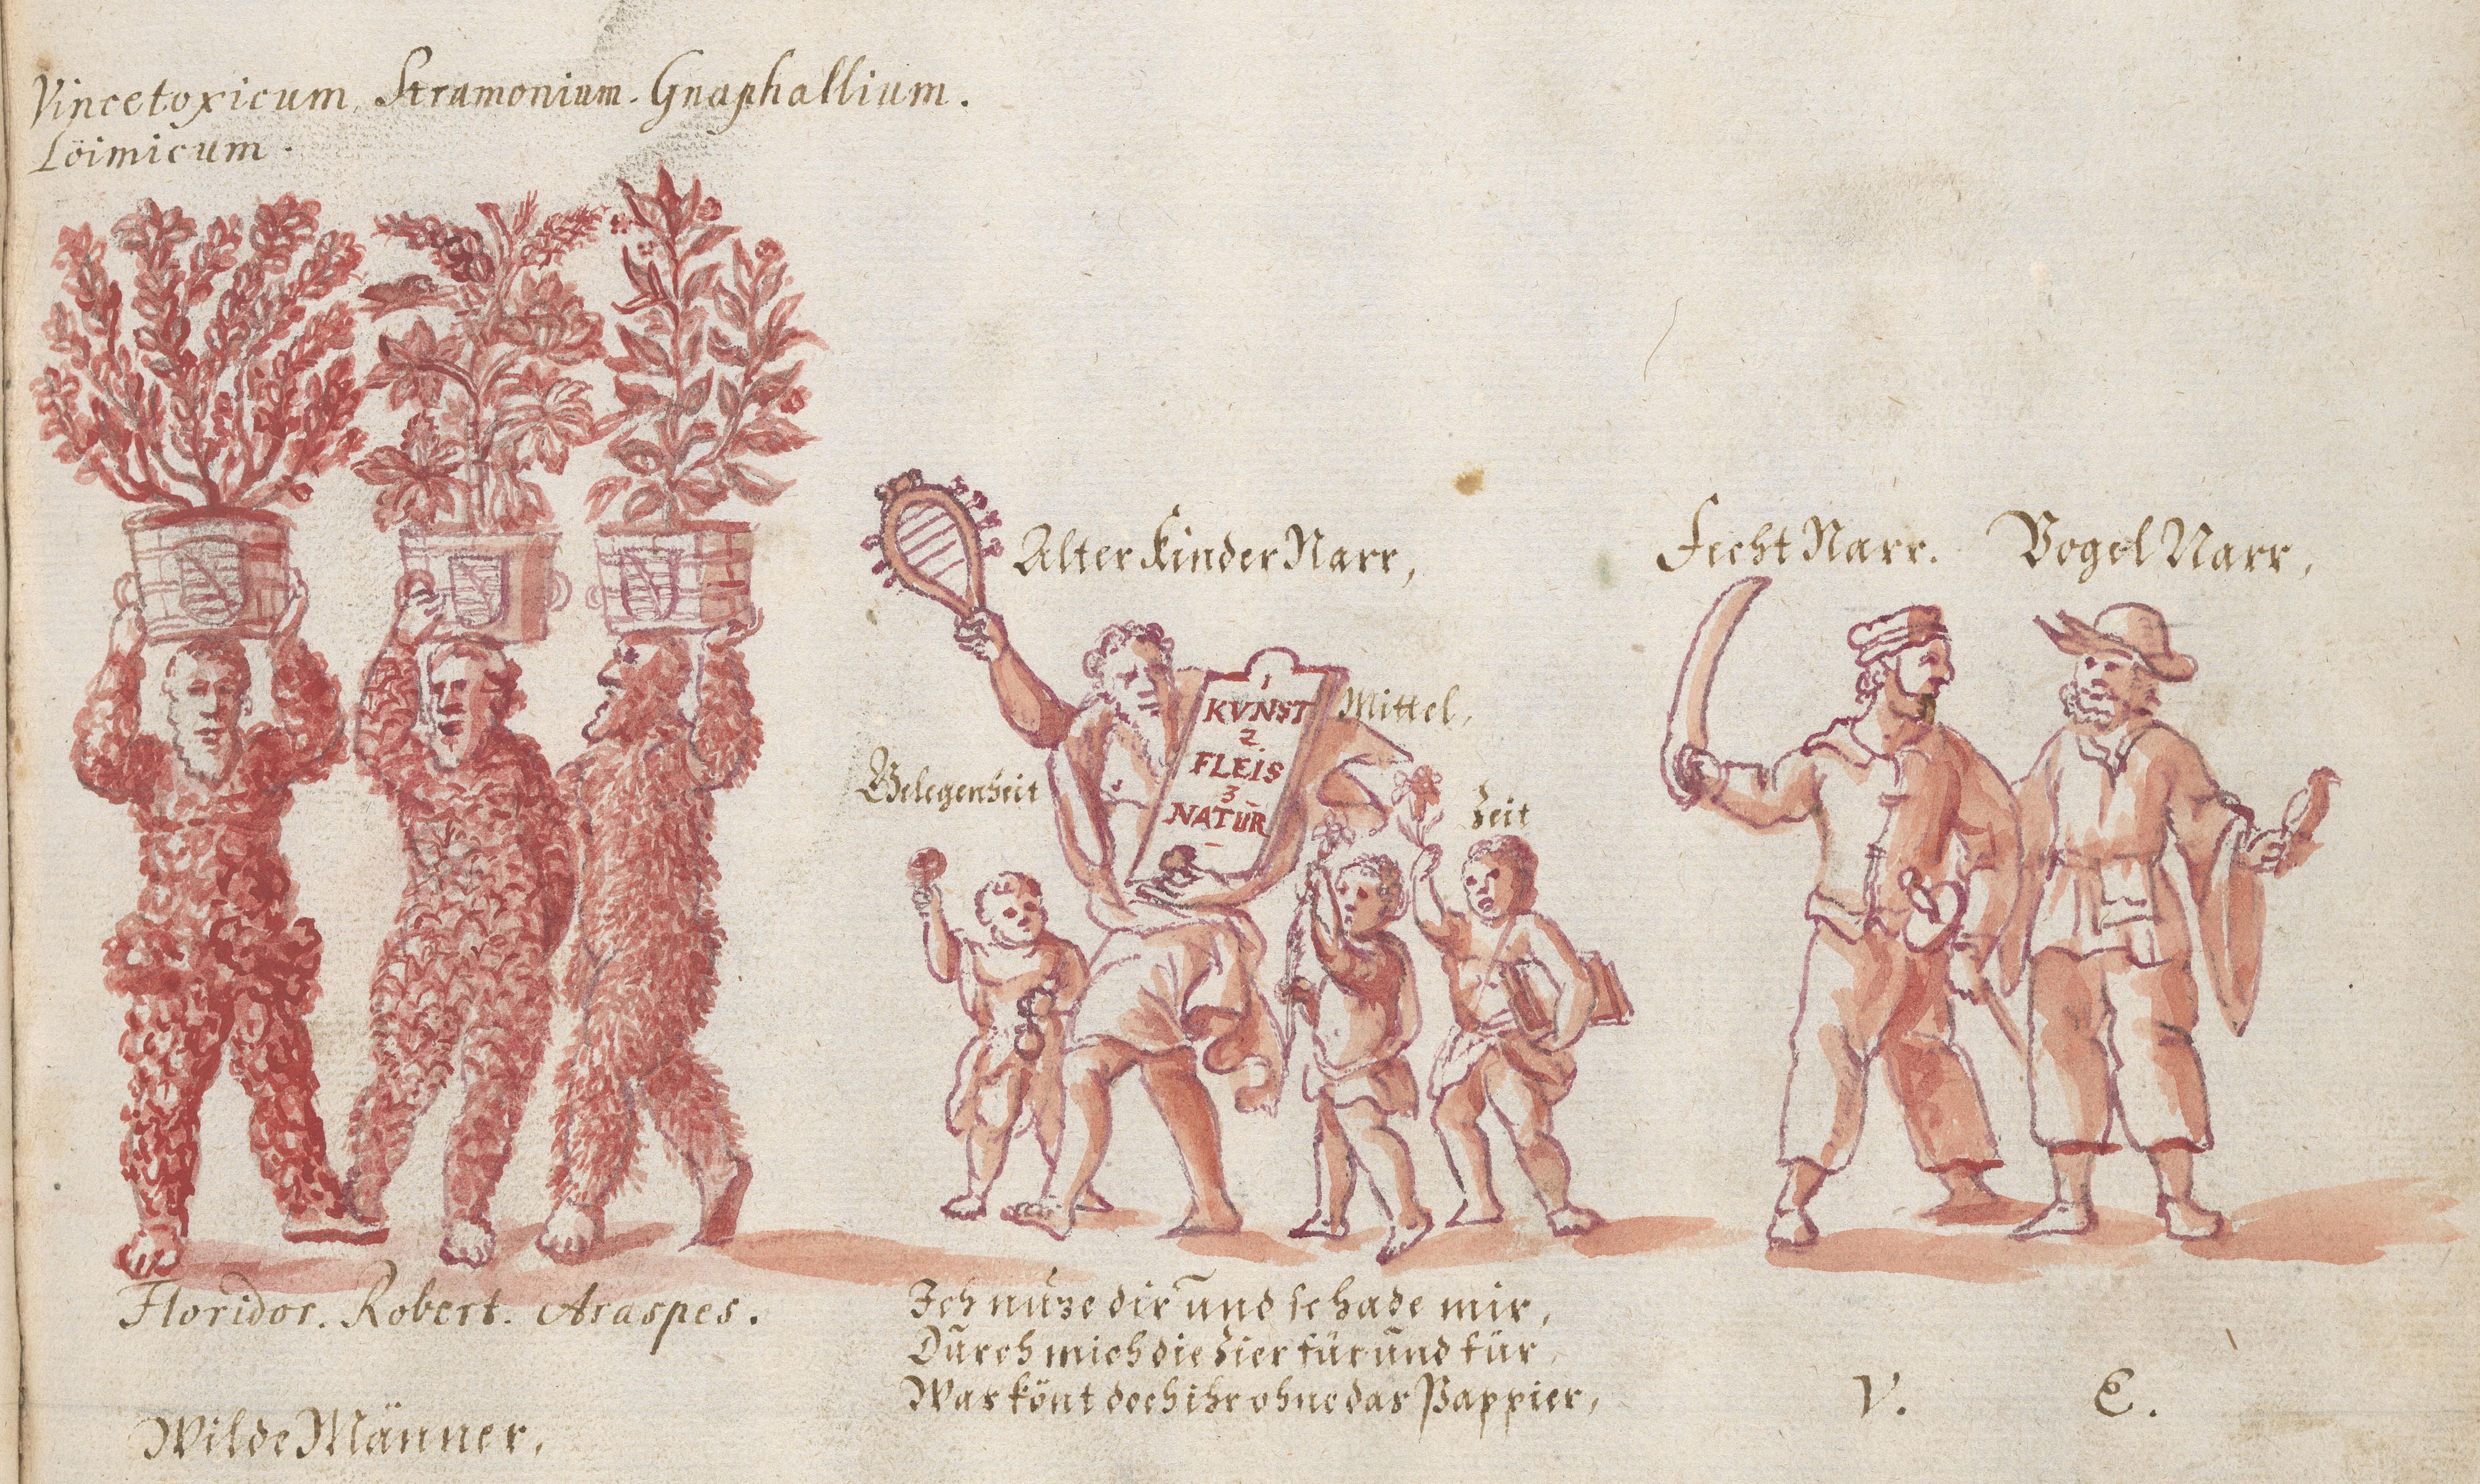 Vincetoxicum. Stramonium. Gnaphallium.
Löimicum.
Alter Kinder Narr,
Fecht Narr. Vogel Narr,
1
KVNST
2.
FLEIS
3
NATUR
Mittel,
Gelegenheit
Zeit
Floridor. Robert. Araspes.
Wilde Männer,
Ich nuze dir und schade mir,
Durch mich die Zier für und für
Was könt doch ihr ohne das Pappier,
V. E.